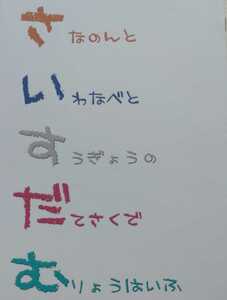 さなのんと
いわなべと
すうぎょうの
だてさくで
むりょうはいふ